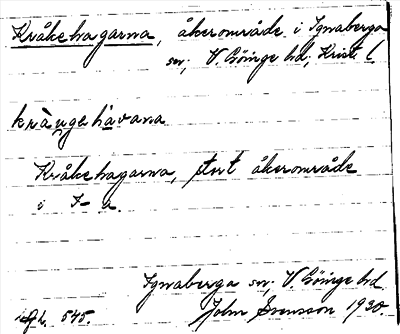 Kråkehagarna, åkerområde i Ignaberga
sn, V. Göinge hd, Krist. l.
krågehàvana
Kråkehagarna, stort åkerområde
i I-a.
Ignaberga sn, V. Göinge hd.
545. John Svensson 1930.